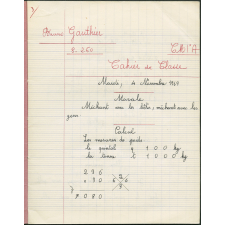 Gauthier
Cahier de Classe
Mardi, 4 Novembre
Morale
Méchant avec les bêtes, méchant avec les
gens.
Calcul
Les mesures de poids
le quintal q 100 kg
la tonne t 1000 kg
236
× 30
7080